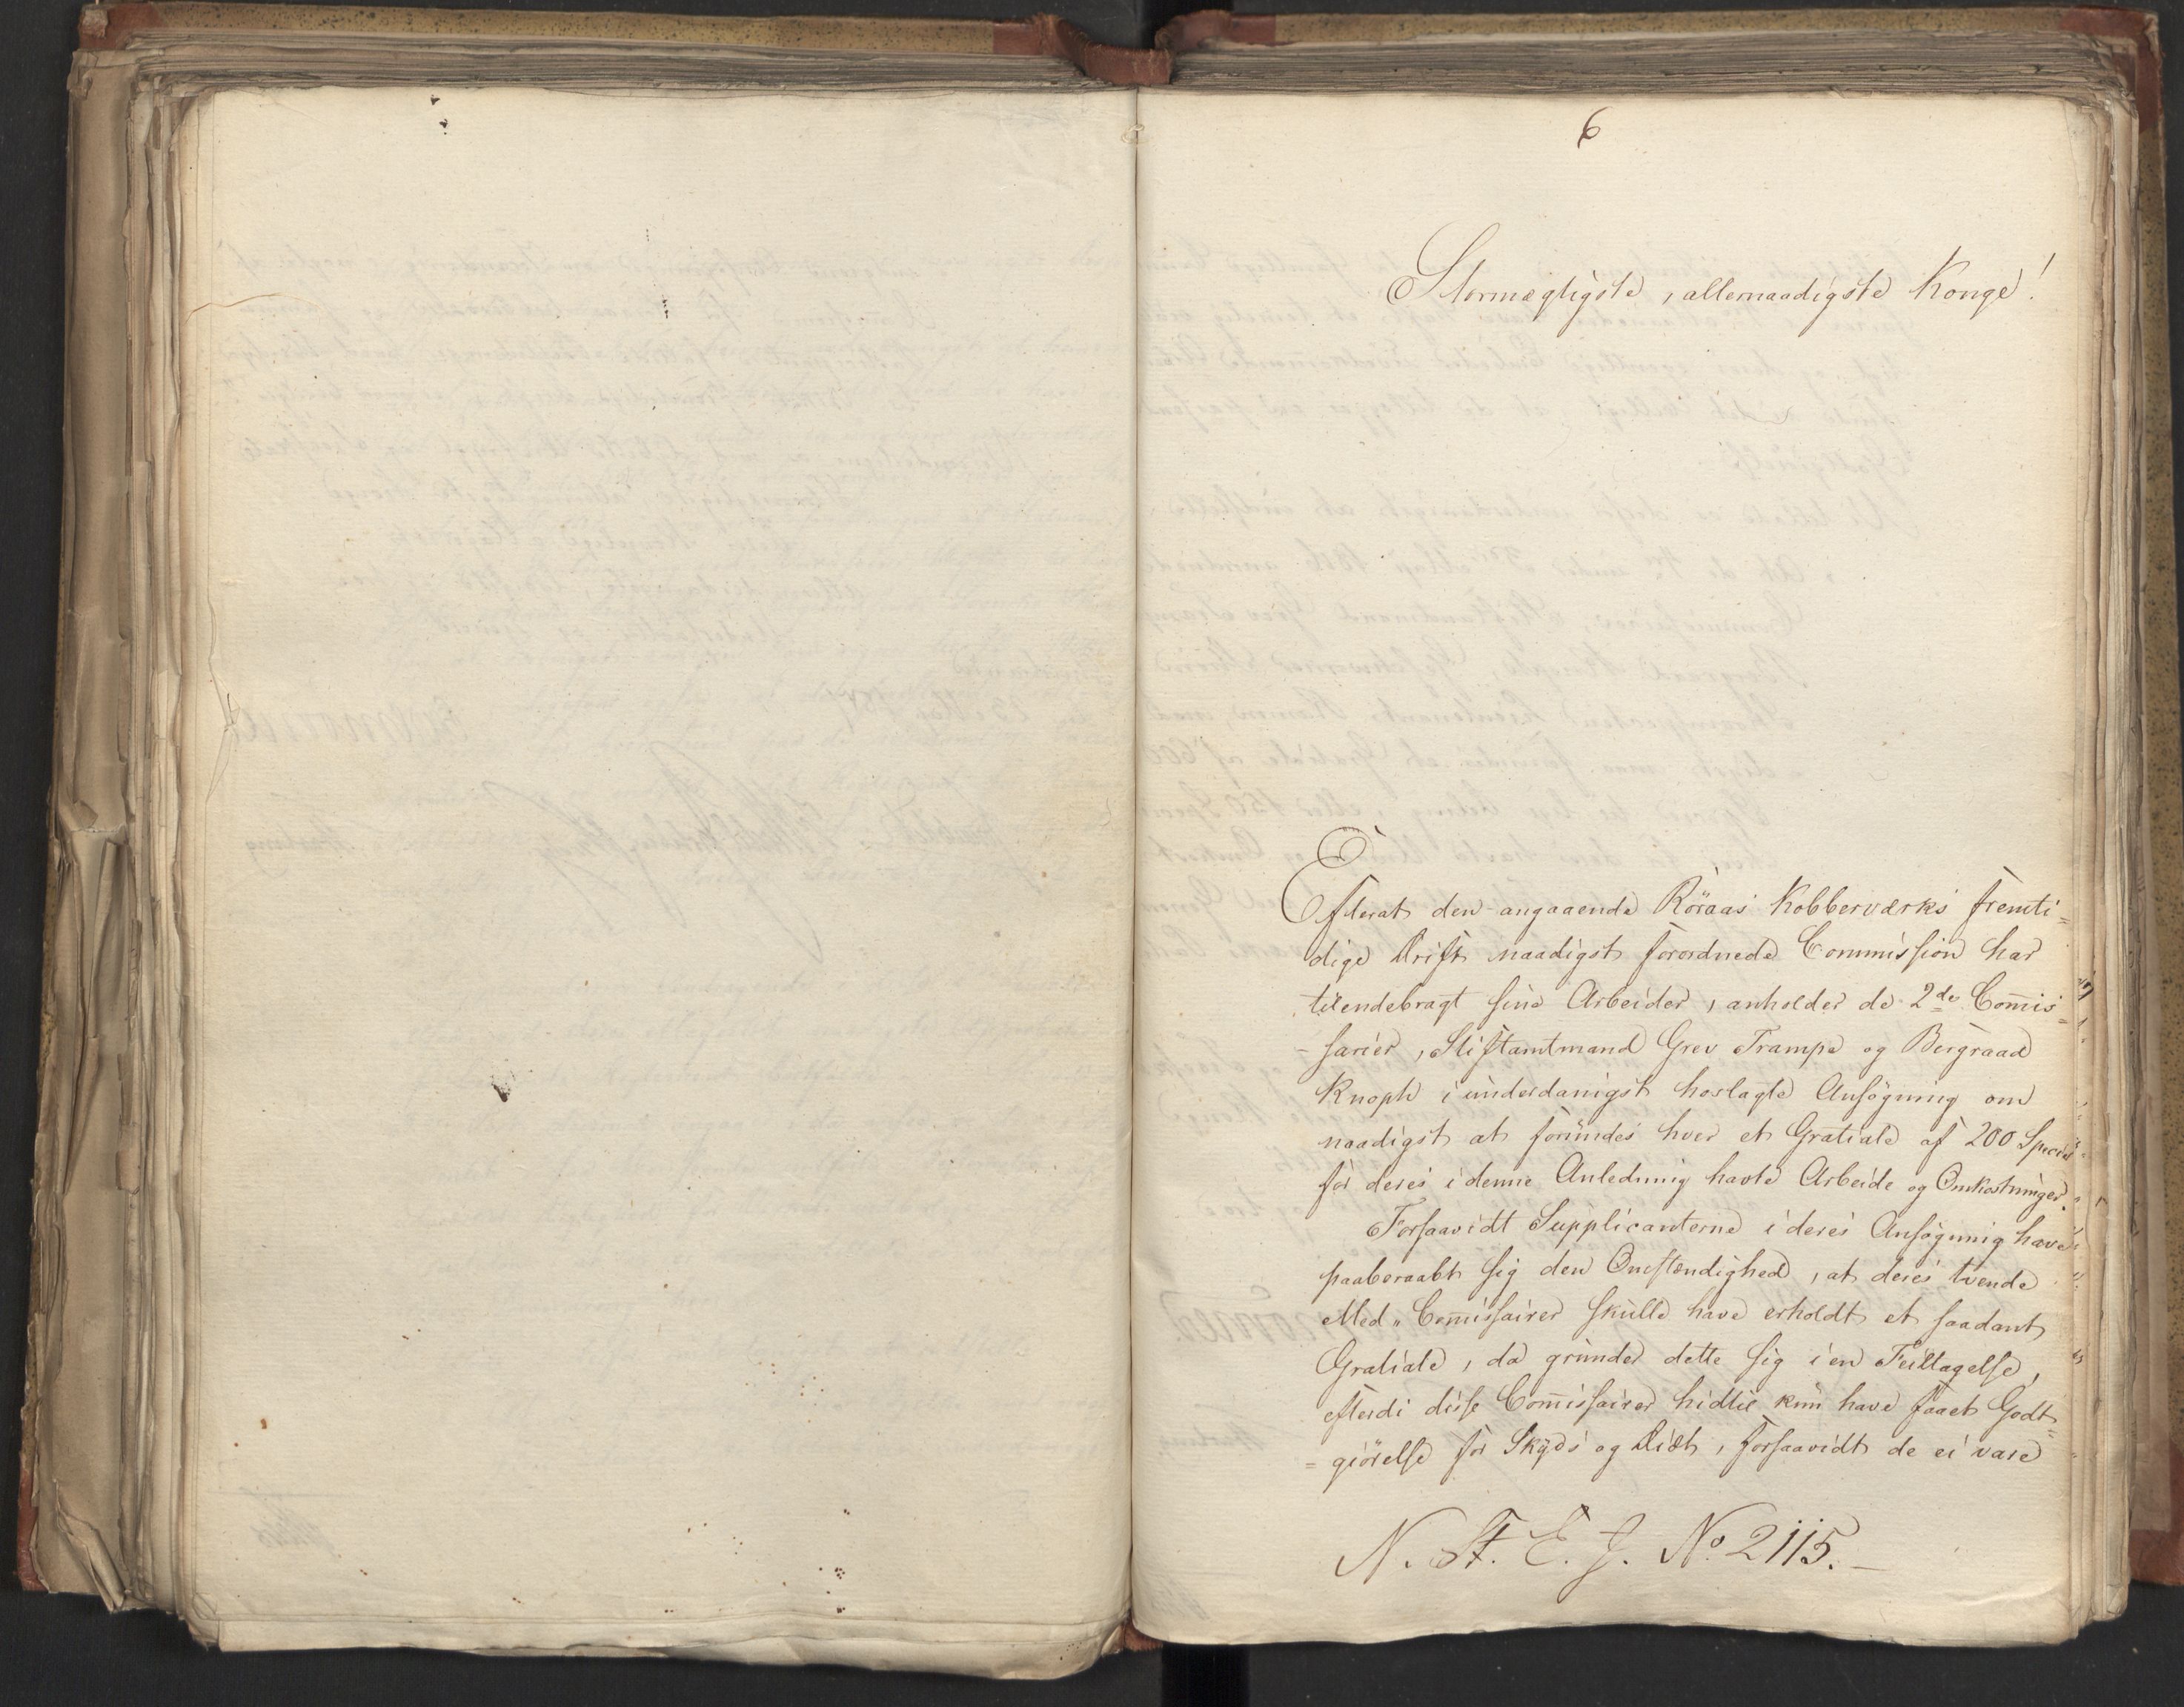 6
Stormægtigste, allernaadigste Konge!
Efterat den angaaende Röraas Kobberværks fremti=
dige Drift naadigst forordnede Commission har
tilendebragt sine Arbeider, anholder de 2de Com̅is=
-sarier, Stiftamtmand Grev Trampe og Bergraad
Knoph i underdanigst hoslagte Ansögning om
naadigst at forundes hver et Gratiale af 200 Species
for deres i denne Anledning havte Arbeide og Omkostninger.
Forsaavidt Supplicanterne i deres Ansögning have
paaberaabt sig den Omstændighed, at deres tvende
Med„Com̅issairer skulle have erholdt et saadant
Gratiale, da grunder dette sig i en Feiltagelse,
efterdi disse Com̅issairer hidtil kun have faaet Godt=
=giörelse for Skyds og Diæt, forsaavidt de ei vare
N. St. E. J. No 2115.-